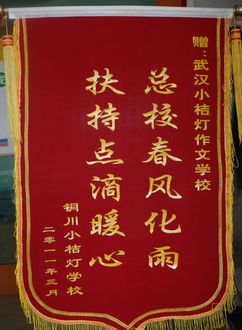 赠：武汉小桔灯作文学校
总校春风化雨
扶持点滴暖心
铜川小桔灯学校
二零一一年三月